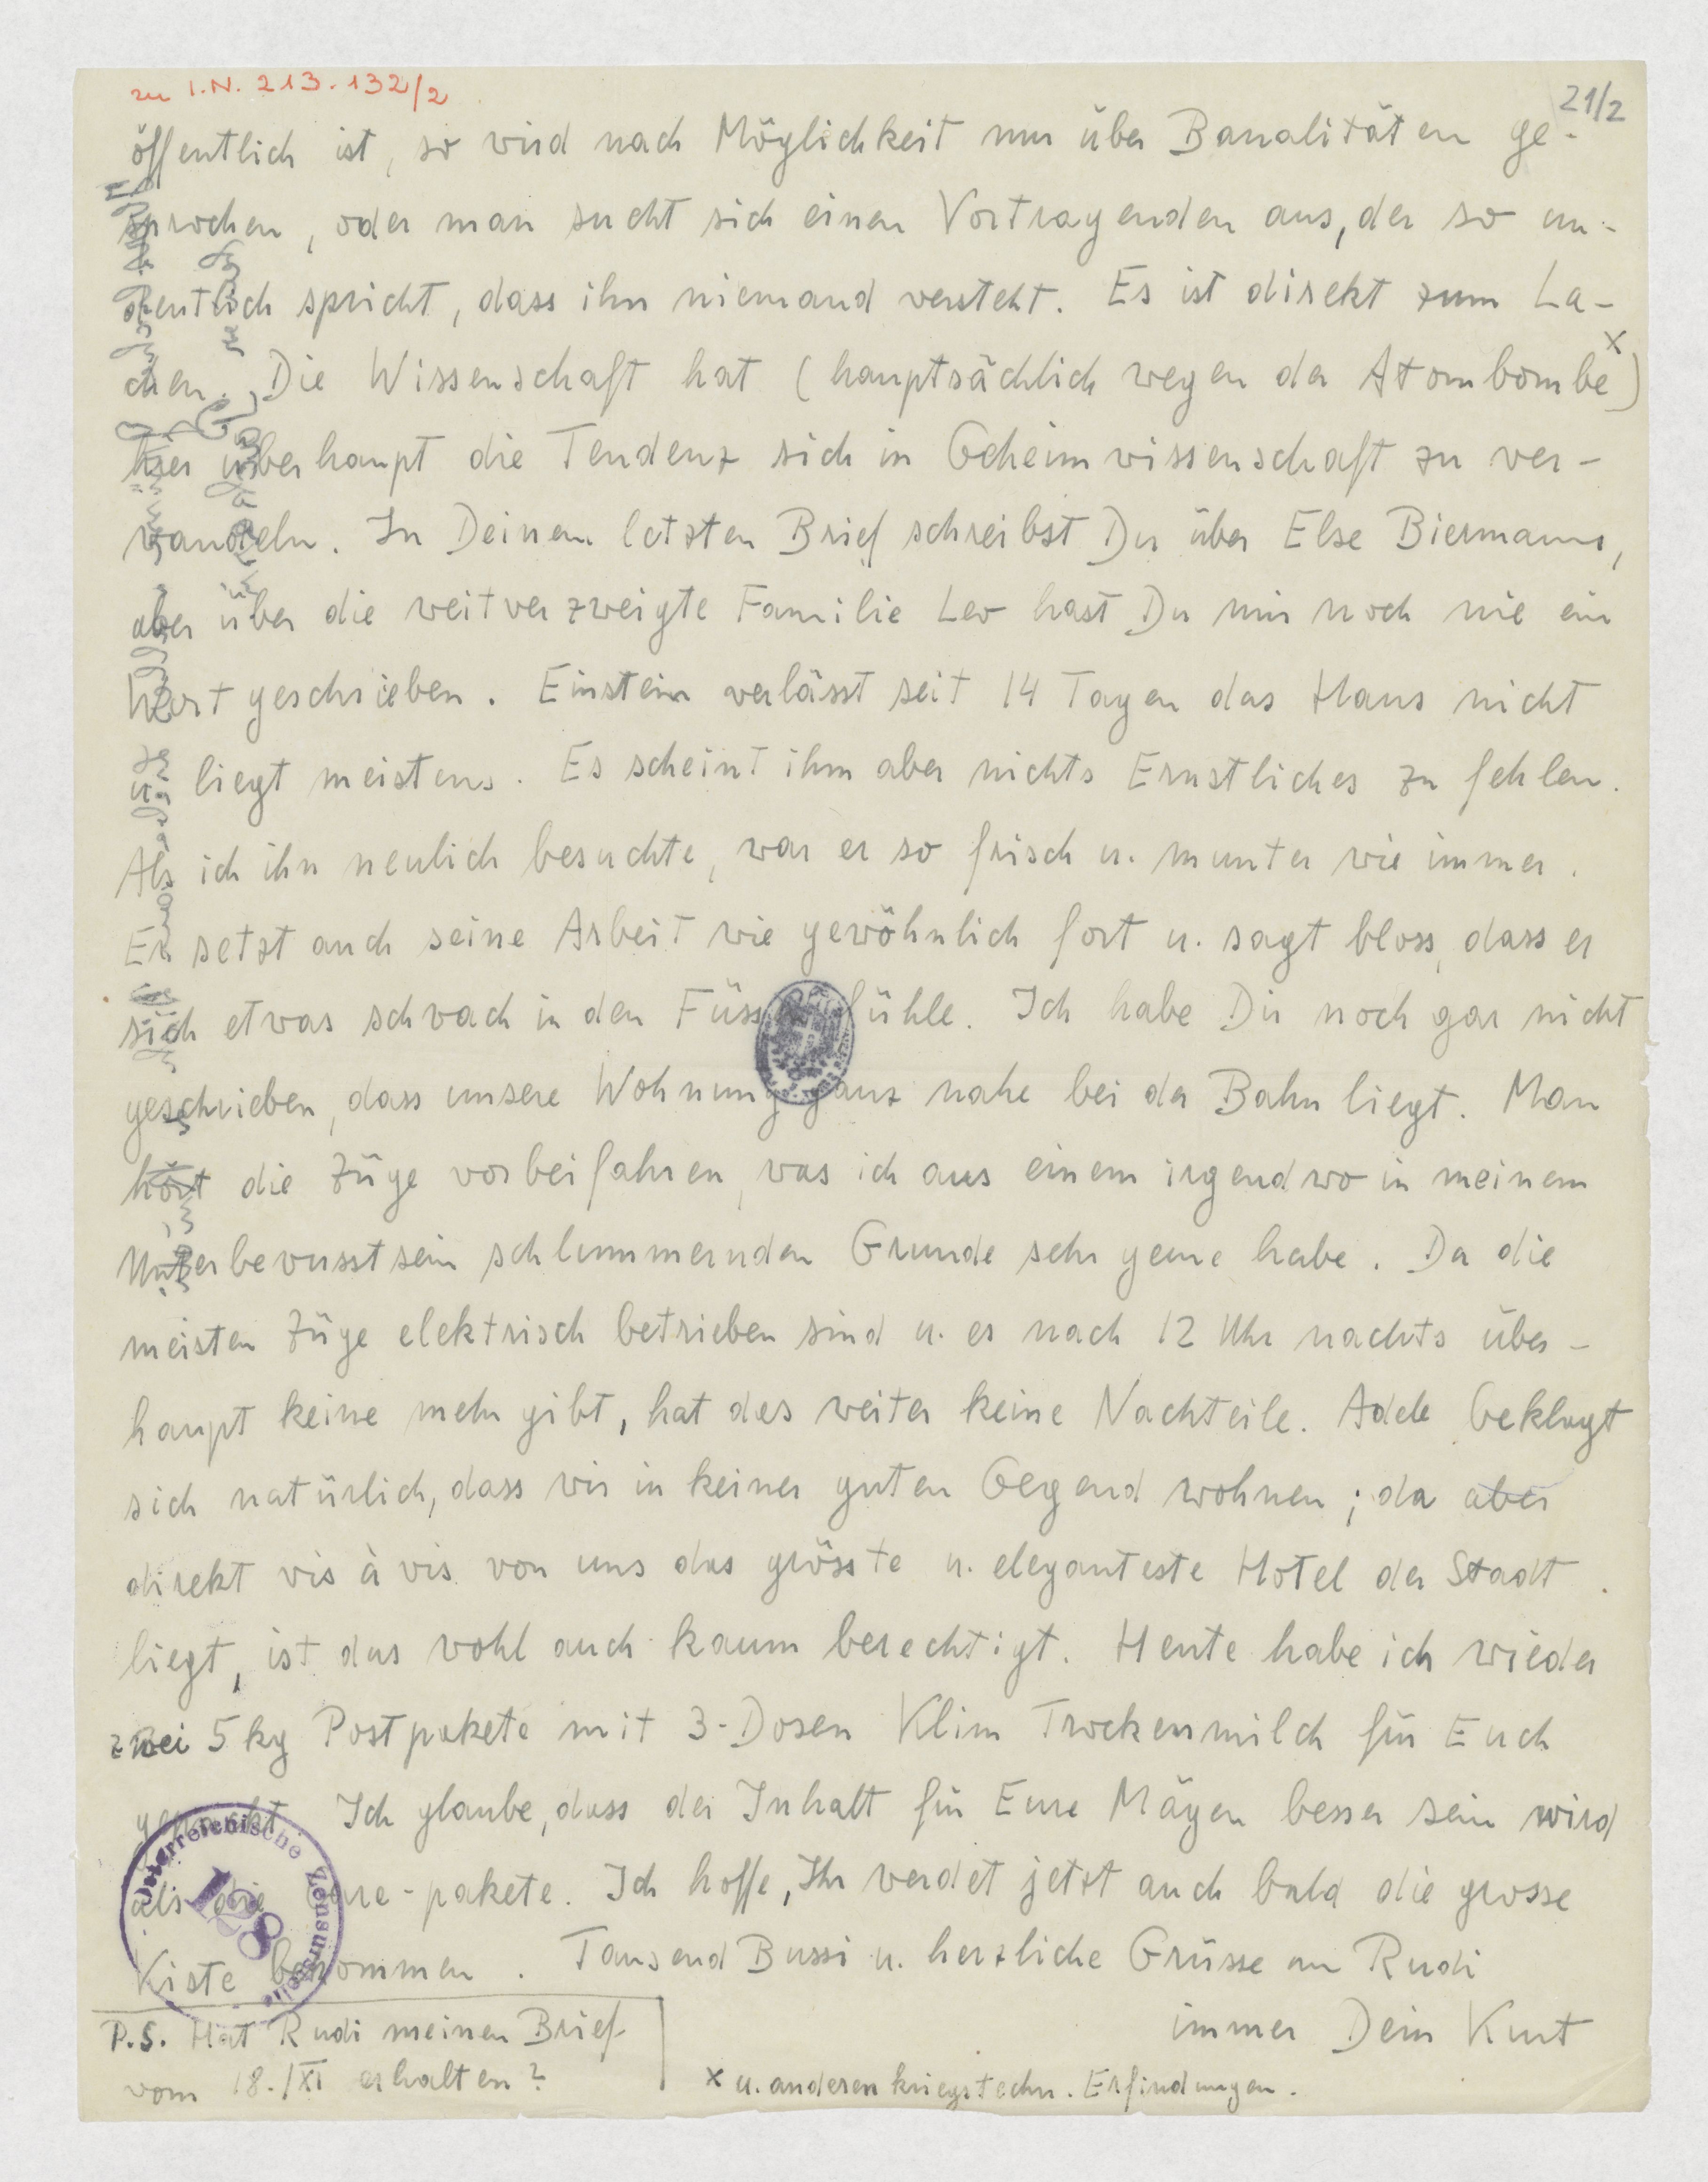 zu I.N. 213.132/2
21/2
öffentlich ist, so wird nach Möglichkeit nur über Banalitäten ge-
sprochen, oder man sucht sich einen Vortragenden aus, der so un-
deutlich spricht, dass ihn niemand versteht. Es ist direkt zum La-
chen. Die Wissenschaft hat (hauptsächlich wegen der Atombombe x)
hier überhaupt die Tendenz sich in Geheimwissenschaft zu ver-
wandeln. In Deinem letzten Brief schreibst Du über Else Biermann,
aber über die weitverzweigte Familie Leo hast Du mir noch nie ein
Wort geschrieben. Einstein verlässt seit 14 Tagen das Haus nicht
u. liegt meistens. Es scheint ihm aber nichts Ernstliches zu fehlen.
Als ich ihn neulich besuchte, war er so frisch u. munter wie immer.
Er setzt auch seine Arbeit wie gewöhnlich fort u. sagt bloss, dass er
sich etwas schwach in den Füssen fühle. Ich habe Dir noch gar nicht
geschrieben, dass unsere Wohnung ganz nahe bei der Bahn liegt. Man
hört die Züge vorbeifahren, was ich aus einem irgendwo in meinem
Unterbewusstsein schlummernden Grunde sehr gerne habe. Da die
meisten Züge elektrisch betrieben sind u. es nach 12 Uhr nachts über-
haupt keine mehr gibt, hat das weiter keine Nachteile. Adele beklagt
sich natürlich, dass wir in keiner guten Gegend wohnen; da aber
direkt vis à vis von uns das grösste u. eleganteste Hotel der Stadt
liegt, ist das wohl auch kaum berechtigt. Heute habe ich wieder
zwei 5 kg Postpakete mit 3-Dosen Klim Trockenmilch für Euch
Ich glaube, dass der Inhalt für Eure Mägen besser sein wird
als die Care-pakete. Ich hoffe, Ihr werdet jetzt auch bald die grosse
Kiste bekommen. Tausend Bussi u. herzliche Grüsse an Rudi
immer Dein Kurt
P.S. Hat Rudi meinen Brief
vom 18./XI erhalten?
x u. anderen kriegstechn. Erfindungen.
Österreichische Zensurstelle
128